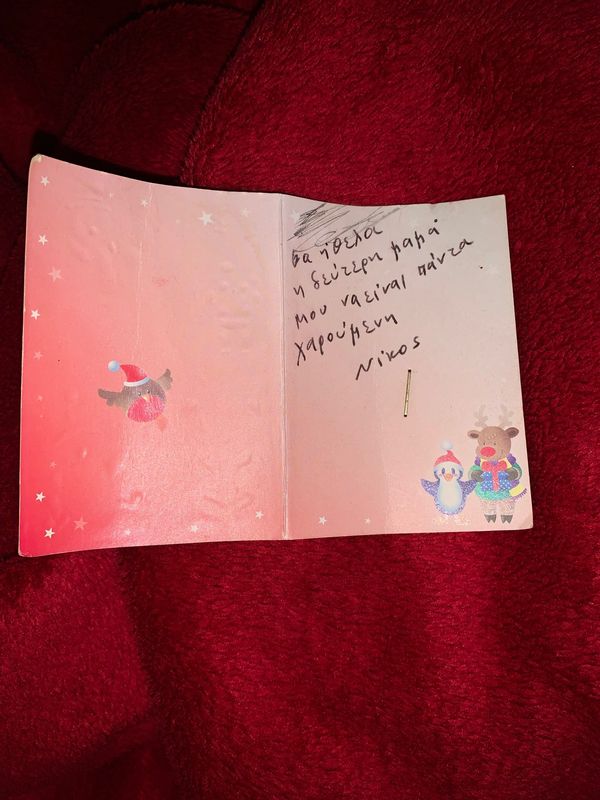 θα ήθελα
η δεύτερη μαμά
μου να είναι πάντα
χαρούμενη
Νίκος